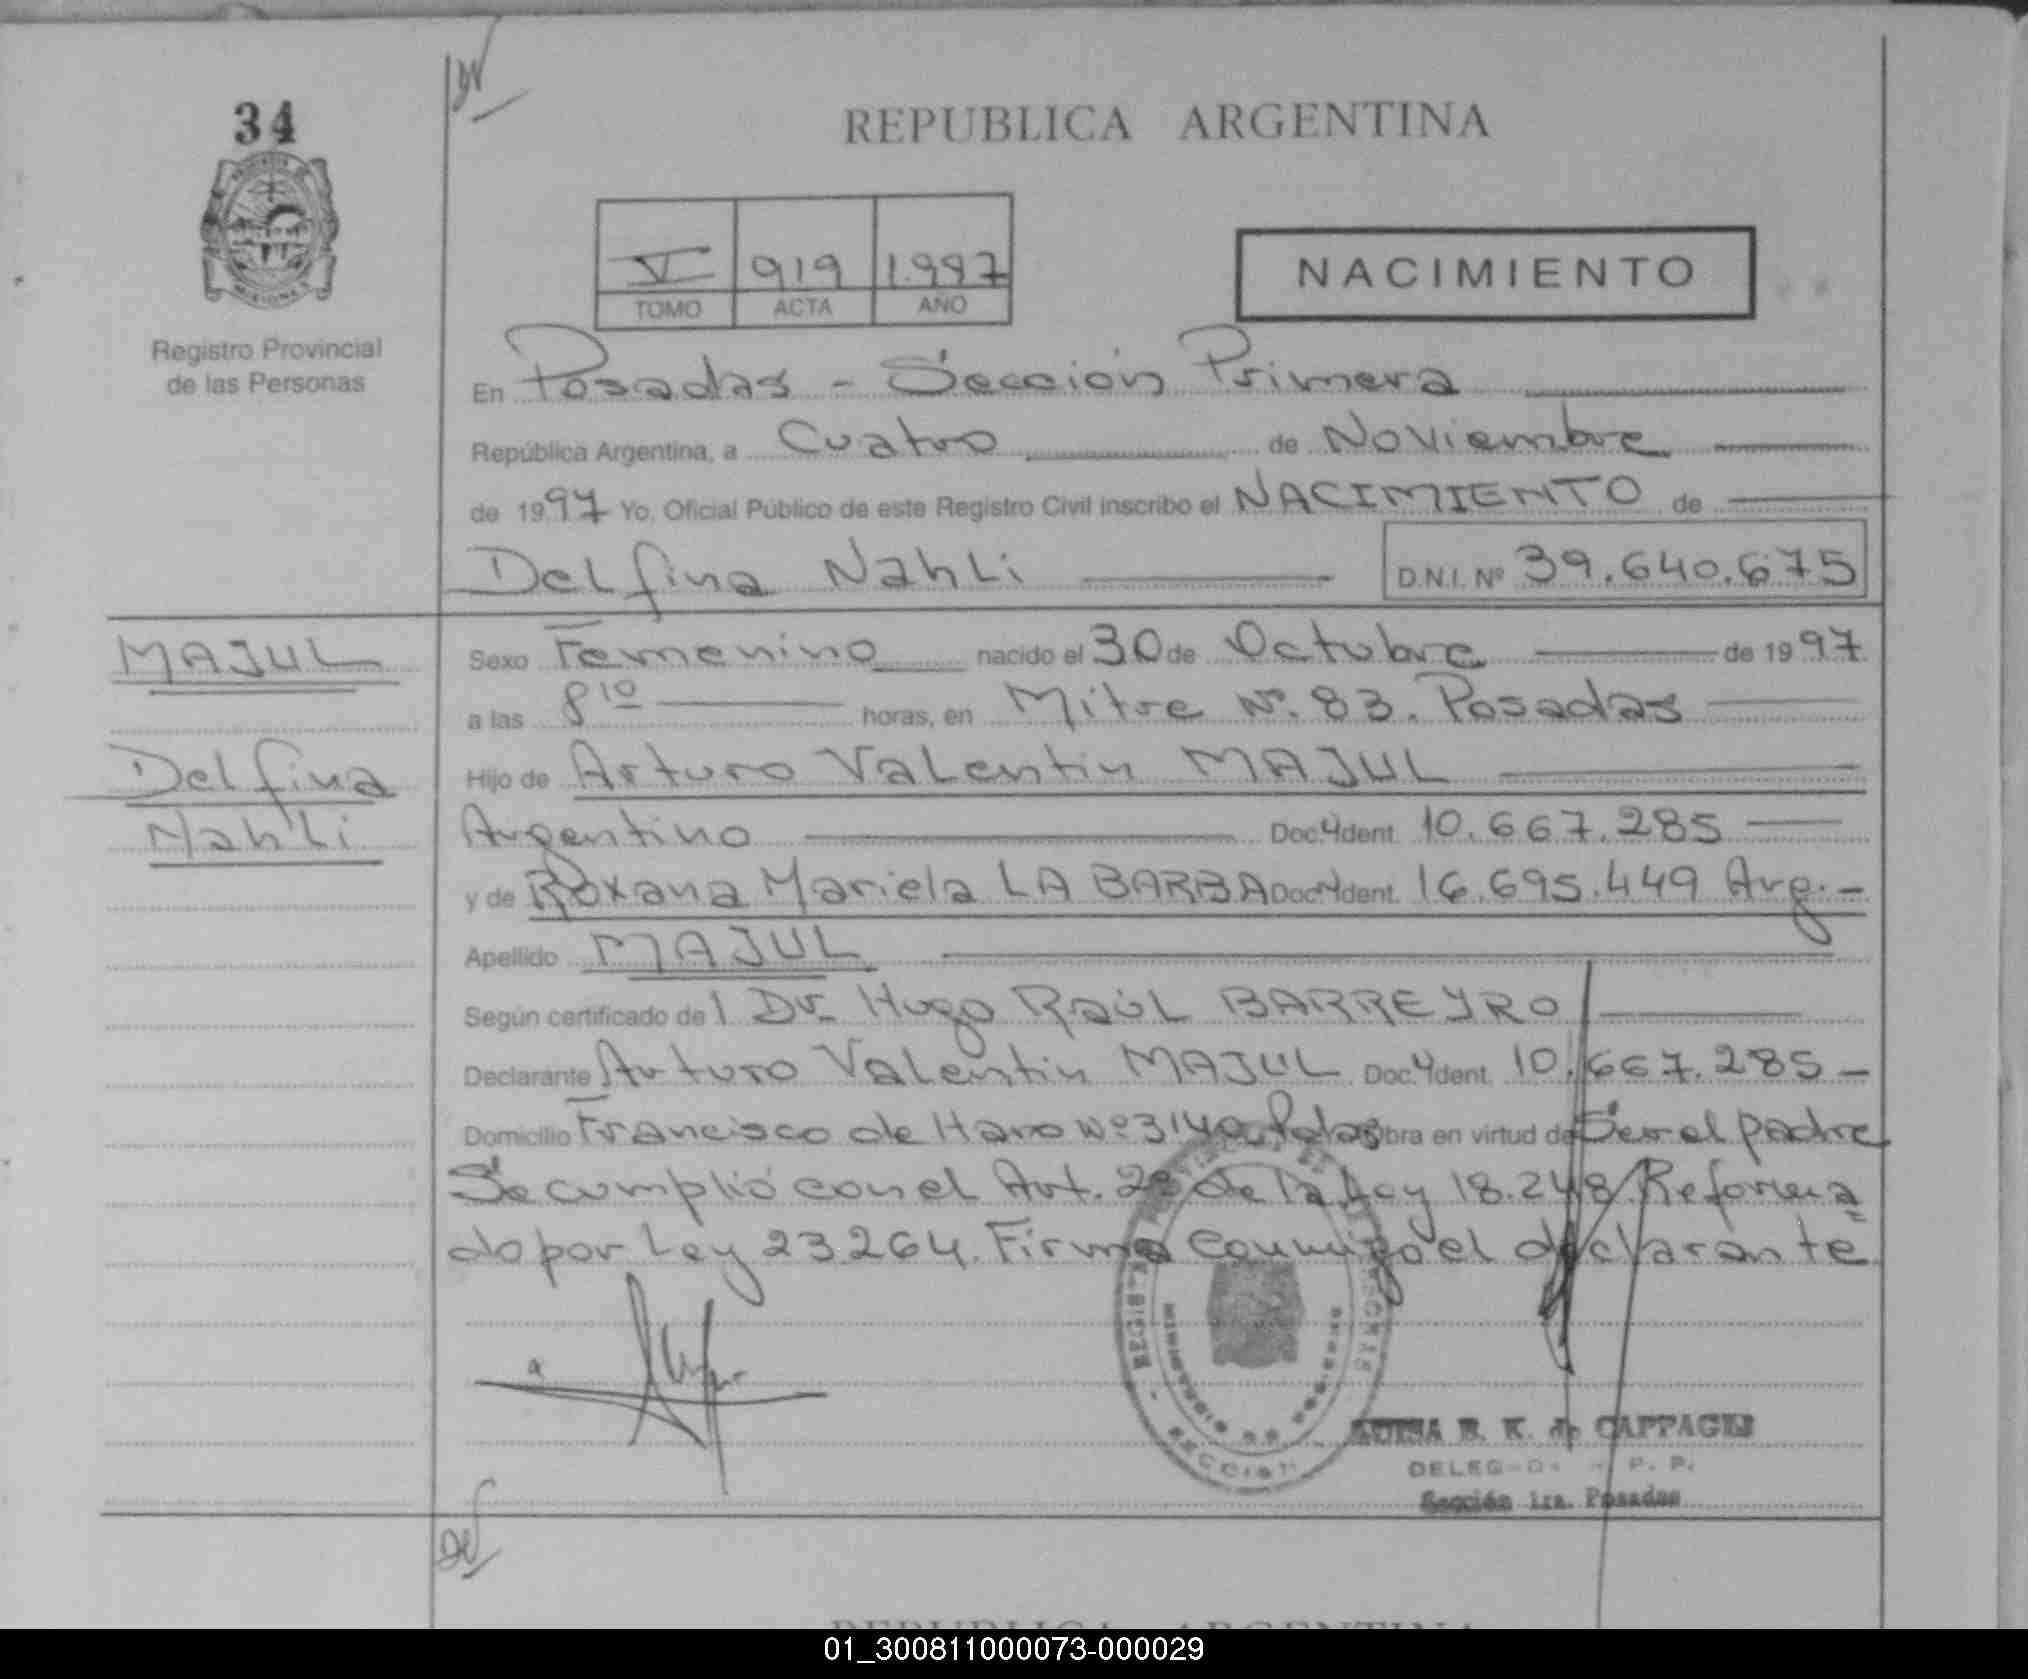 34
REPUBLICA ARGENTINA
V 919 1.997
TOMO ACTA AÑO
NACIMIENTO
Registro Provincial
de las Personas
En Posadas - Sección Primera
República Argentina, a Cuatro de Noviembre
de 1997 Yo, Oficial Público de este Registro Civil inscribo el NACIMIENTO de
Delfina Nahli D.N.I. Nº 39.640.675
MAJUL
Delfina
Nahli
Sexo Femenino nacido el 30 de Octubre de 1997
a las 8 10 horas, en Mitre Nº. 83. Posadas
Hijo de Arturo Valentin MAJUL
Argentino Doc. Ident. 10.667.285
y de Roxana Mariela LA BARBA Doc. Ident. 16.695.449 Arg.-
Apellido MAJUL
Según certificado de l Dr. Hugo Raúl BARREYRO
Declarante Arturo Valentin MAJUL Doc. Ident. 10.667.285-
Domicilio Francisco de Haro Nº 3140 Pdas Obra en virtud de Ser el padre
Se cumplió con el Art. 2º de la Ley 18.248 Reforma
do por Ley 23.264. Firma conmigo el declarante
B. K. de CAPPAGLI
Sección 1ra. Posadas
REPUBLICA ARGENTINA
01_300811000073-000029